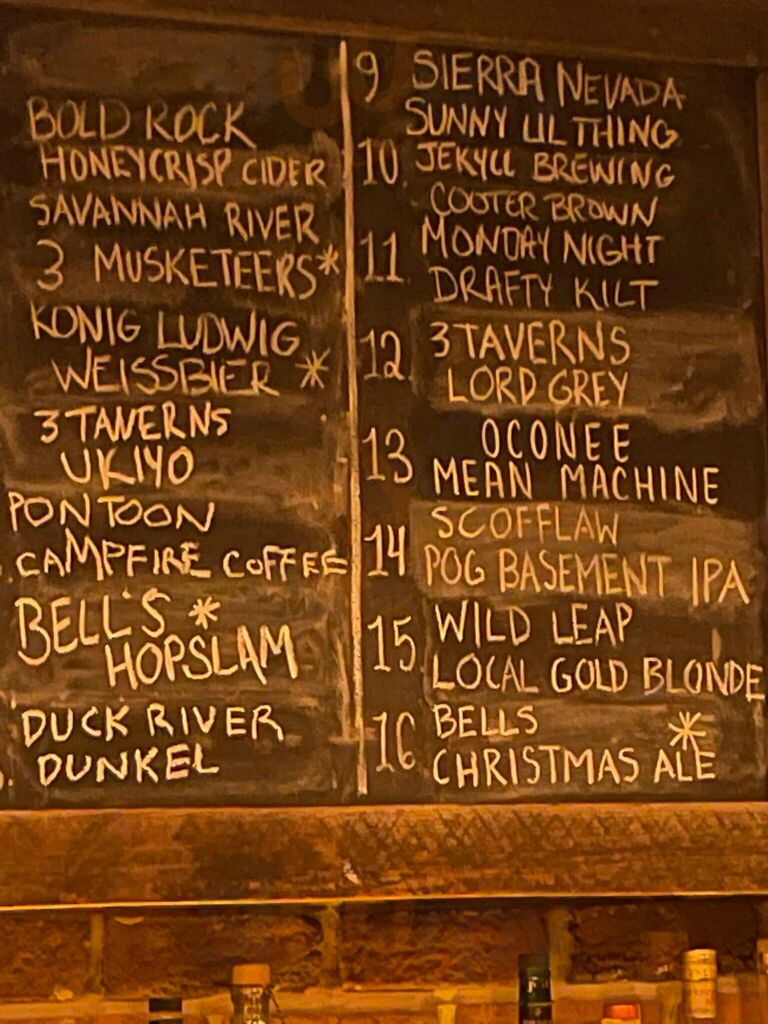 BOLD ROCK
HONEYCRISP CIDER
SAVANNAH RIVER
3 MUSKETEERS*
KONIG LUDWIG
WEISSBIER *
3 TAVERNS
UKIYO
PONTOON
CAMPFIRE COFFEE
BELL'S *
HOPSLAM
DUCK RIVER
DUNKEL
9 SIERRA NEVADA
SUNNY LIL THING
10. JEKYLL BREWING
COOTER BROWN
11. MONDAY NIGHT
DRAFTY KILT
12. 3 TAVERNS
LORD GREY
13 OCONEE
MEAN MACHINE
14 SCOFFLAW
POG BASEMENT IPA
15. WILD LEAP
LOCAL GOLD BLONDE
16 BELLS *
CHRISTMAS ALE